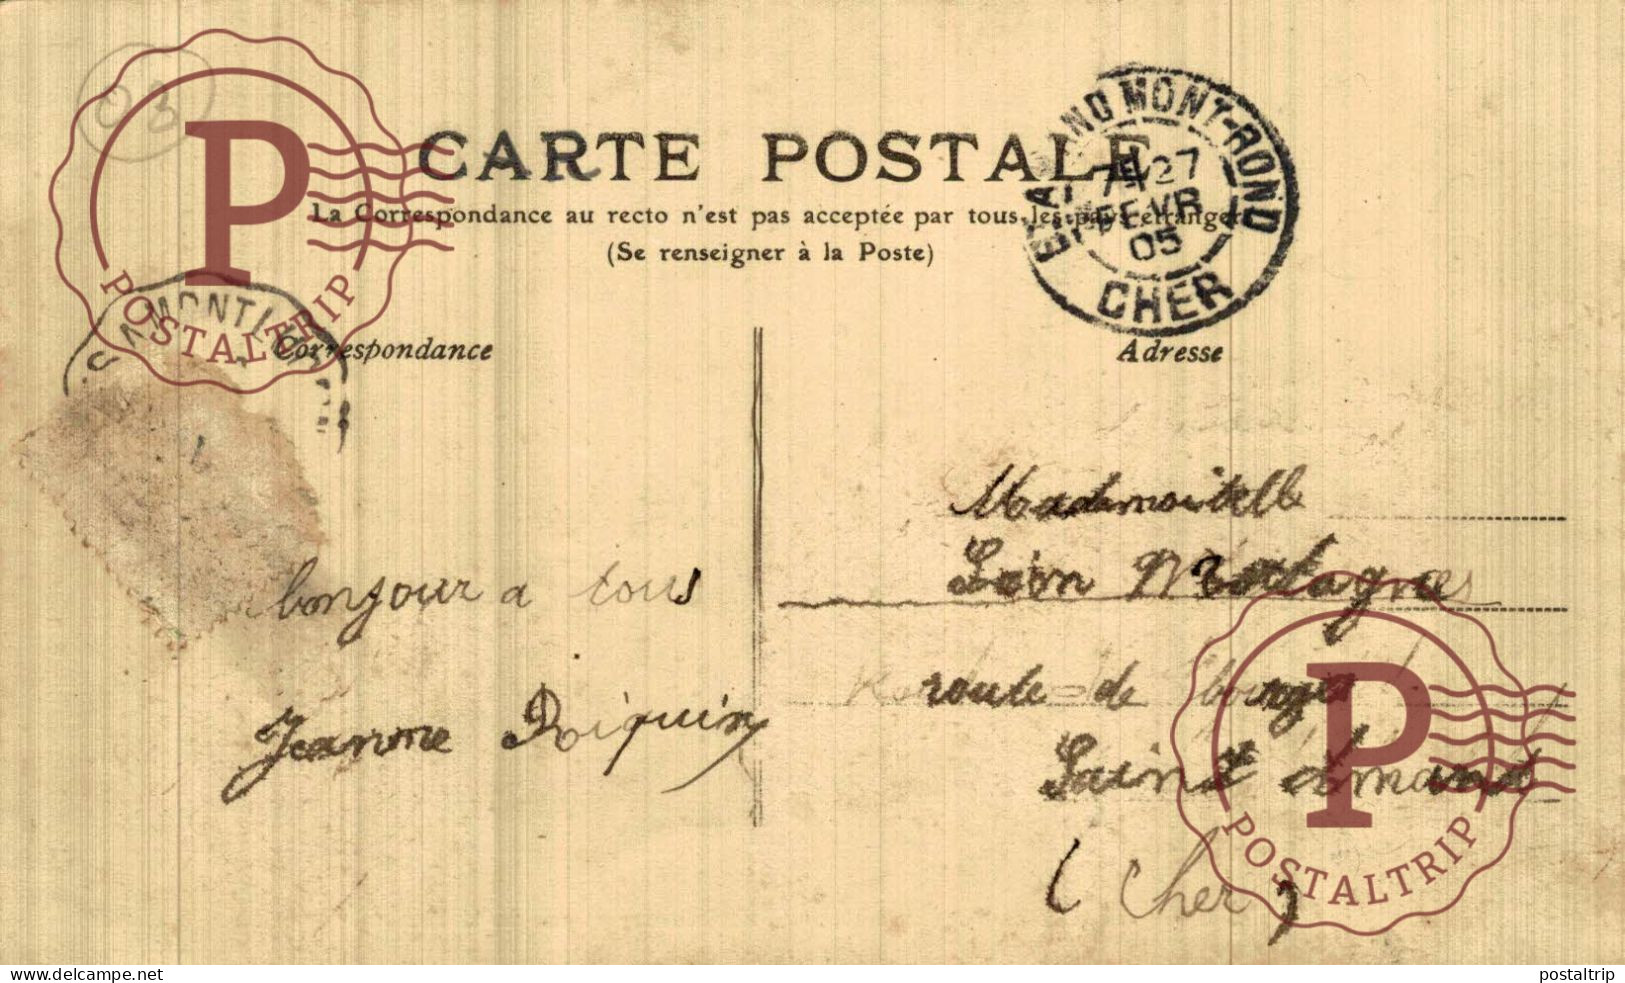 03
CARTE POSTALE
La Correspondance au recto n'est pas acceptée par tous les pays étrangers
(Se renseigner à la Poste)
MONT-ROND
27
FEVR
05
CHER
P
POSTALTRIP
Correspondance
Adresse
bonjour a tous
Jeanne Poiquin
Mademoiselle
Léon
route de bourges
Saint Amand
(Cher)
P
POSTALTRIP
www.delcampe.net
postaltrip